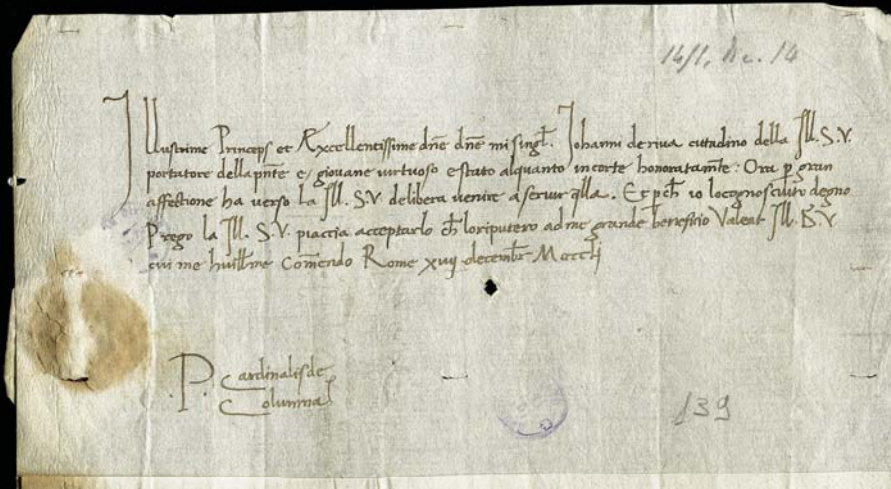 1451, Dec. 14
Illustrime Princeps et Excellentissime dñe dñe mi singl̃. Iohanni de riua cittadino della Ill. S.V.
portatore della pñte e/ giouane uirtuoso e stato alquanto in corte honoratamẽte: Ora p gran
affectione ha verso la Ill. S.V. delibera uenire a seruir q̃lla. Et p ch̃ io lo cognosco degno
Prego la Ill. S.V. piaccia acceptarlo ch̃ lo riputero ad me grande beneficio Valeat Ill. D.V.
cui me huĩlme Com̃endo Rome xvij decembr̃ Mccclj
.P. Cardinalis de
Columna
139